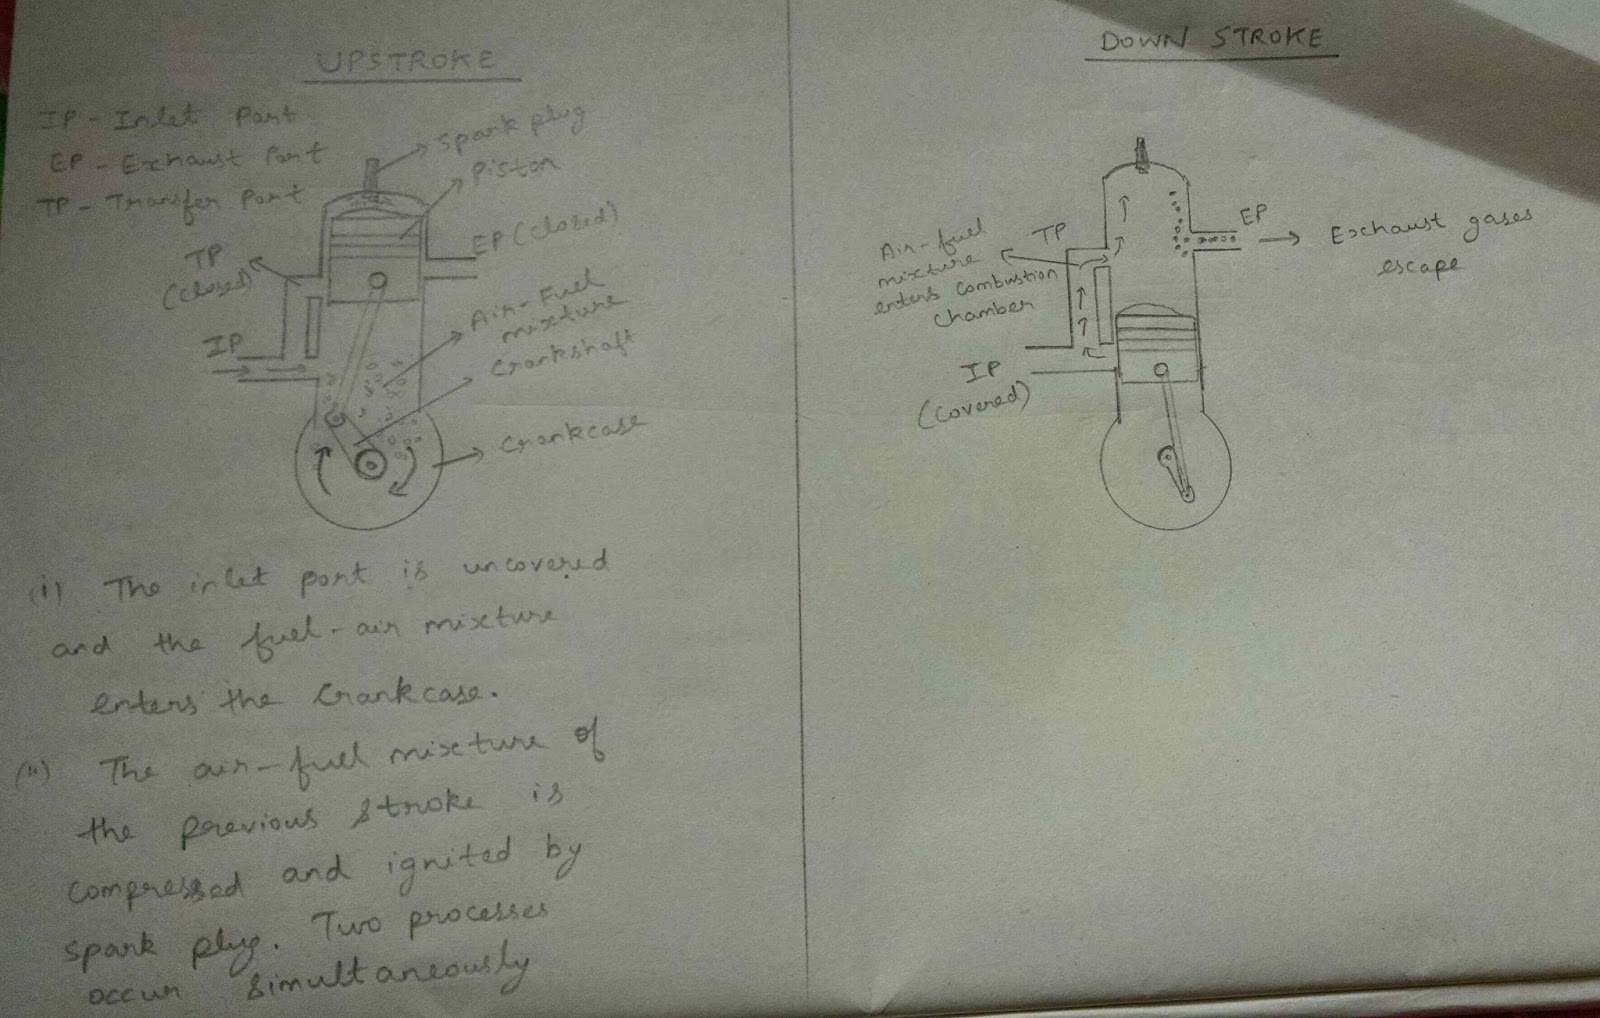 UPSTROKE
IP - Inlet Port
EP - Exhaust Port
TP - Transfer Port
spark plug
Piston
TP
(closed)
EP (closed)
Air-Fuel
mixture
crankshaft
IP
crankcase
(i) The inlet port is uncovered
and the fuel-air mixture
enters the crankcase.
(ii) The air-fuel mixture of
the previous stroke is
compressed and ignited by
spark plug. Two processes
occur simultaneously
DOWN STROKE
Air-fuel
mixture
enters combustion
chamber
TP
EP
Exhaust gases
escape
IP
(covered)